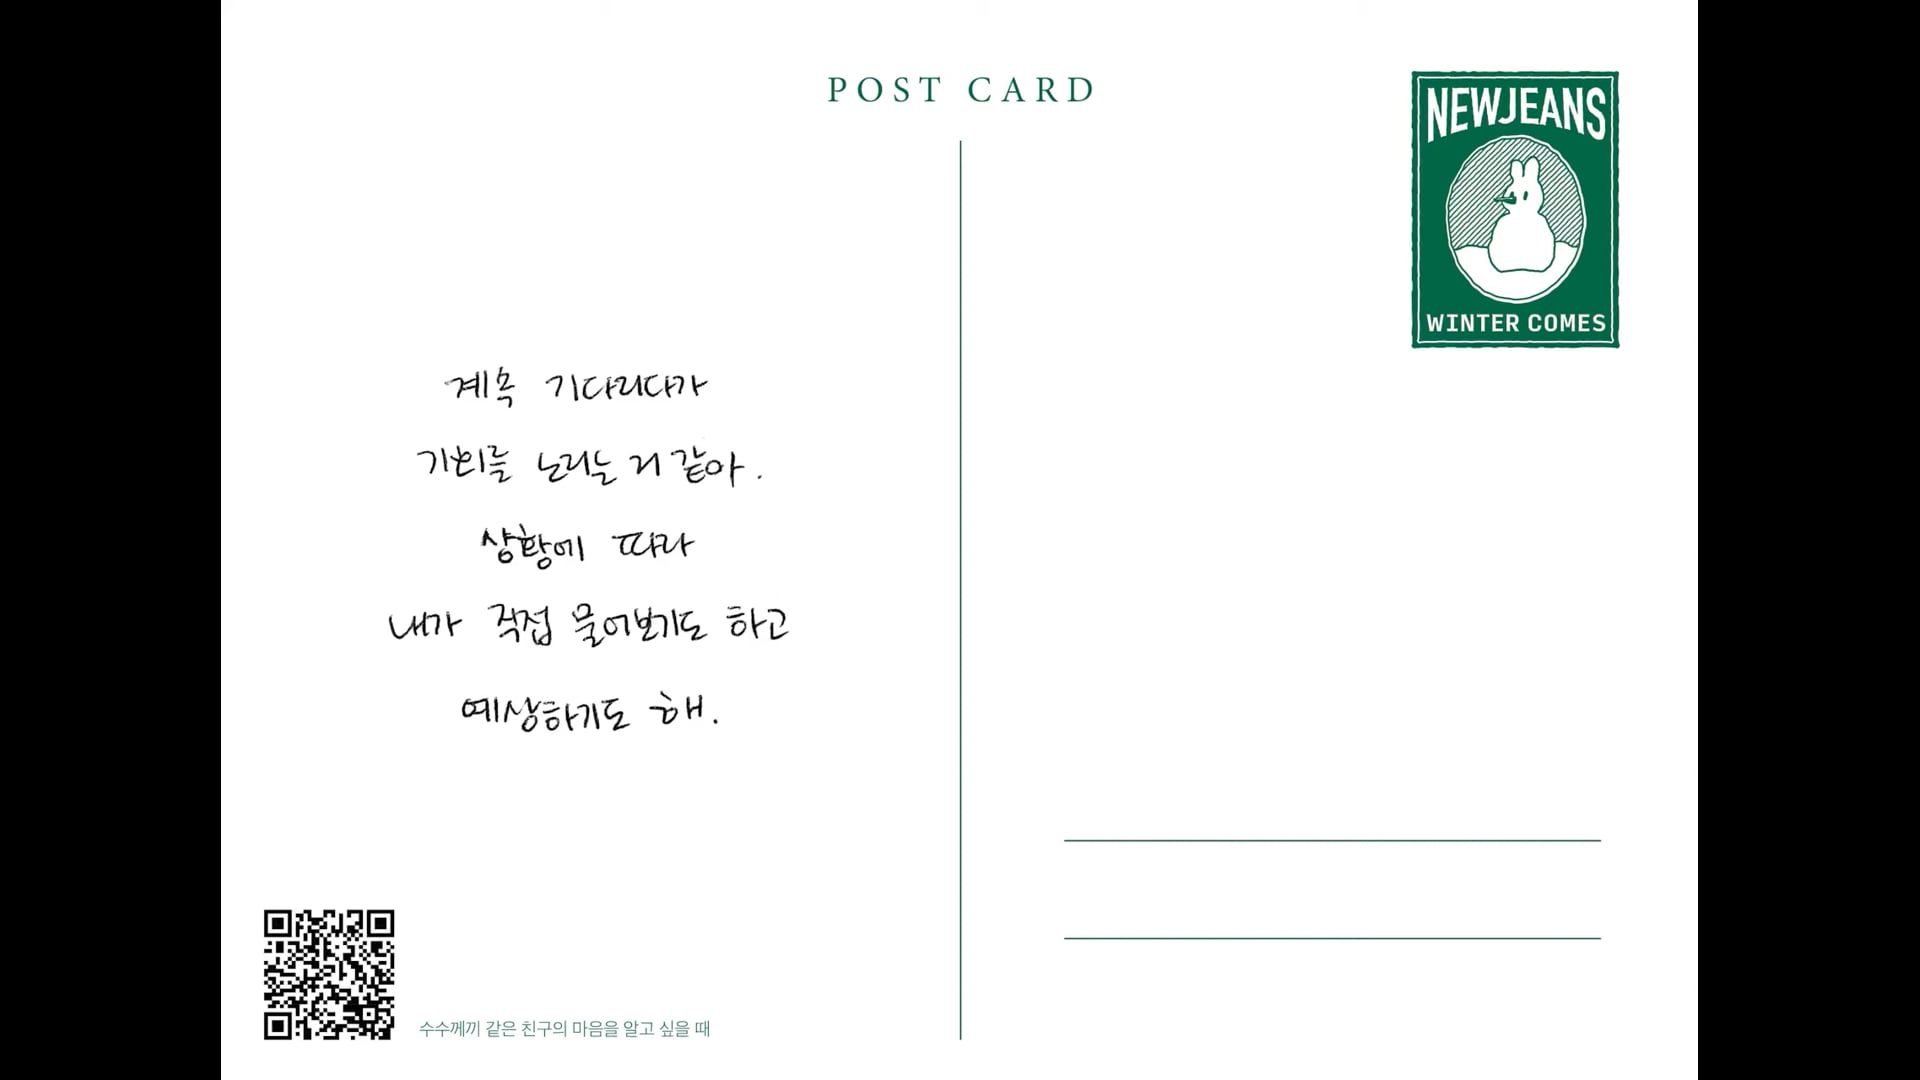 POST CARD
NEWJEANS
WINTER COMES
계속 기다리다가
기회를 노리는 거 같아.
상황에 따라
내가 직접 물어보기도 하고
예상하기도 해.
수수께끼 같은 친구의 마음을 알고 싶을 때